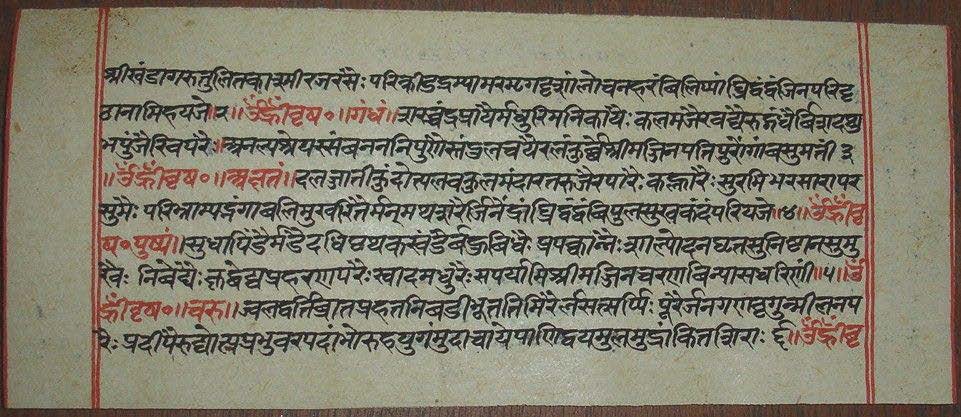 श्रीखंडागरुतुलितकाश्मीरजरसैः परिक्रीडद्रम्यामरमृगदृशांलोचनहरंविलिप्यांघ्रिद्वंद्वंजिनपरिवृ
ढानामिहयजे २॥ॐह्रींवृष०॥गंधं॥शरच्चंद्रप्रायैर्मधुरिमनिकायैः कलमजैरखंडैरुद्गंधैर्विशदशु
भपुंजैरविपरैः॥अनल्पश्रेयस्संवनननिपुणैस्तंडुलचयैरलंकुर्व्वेश्रीमज्जिनपतिपुरोगांवसुमतीं ३
॥ॐह्रींवृष०॥अक्षतं॥दलज्जातीकुंदोत्पलवकुलमंदारतरुजैरपारैः कल्हारैः सुरभिभरसारापर
सुमैः परिभ्राम्यद्भृंगावलिमुखरितैर्मन्मथशरैर्जिनेंद्रांघ्रिद्वंद्वंविपुलसुखकंदंपरियजे॥४॥ॐह्रींवृ
ष०पुष्पं॥सुधापिंडैर्मंडैर्दधिपृथकखंडैर्बहुविधैः प्रपक्वान्नैः शाल्योदनघनसुनिष्ठानसुमु
खैः निवेद्यैः क्षुद्वेद्यप्रहरणपरैः स्वादमधुरैः सपर्यामिश्रीमज्जिनचरणविन्यासधरिणीं॥५॥ॐ
ह्रींवृष०॥चरु॥ज्वलद्वर्तिव्रातप्रहतनिबडीभूततिमिरैर्लसत्सर्प्पिः पूरैर्जनगणदृगुन्मीलनप
रैः प्रदीपैरुद्योत्प्रप्रभुवरपदांभोरुहयुगंमुदाचायेपाणिद्वयमुलमुद्रांकितशिराः ६॥ॐह्रींवृ